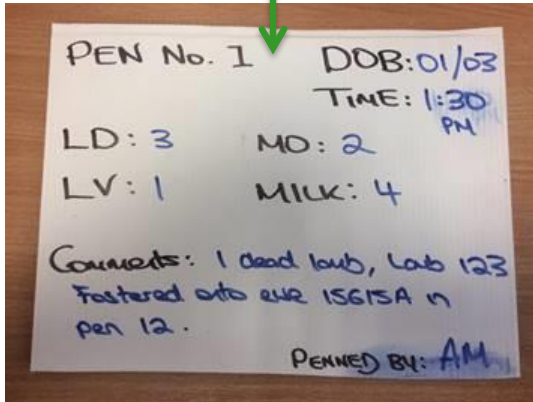 PEN No. 1 DOB: 01/03
TIME: 1:30
PM
LD: 3 MO: 2
LV: 1 MILK: 4
Comments: 1 dead lamb, Lamb 123
Fostered onto ewe 15615A in
pen 12.
PENNED BY: AM